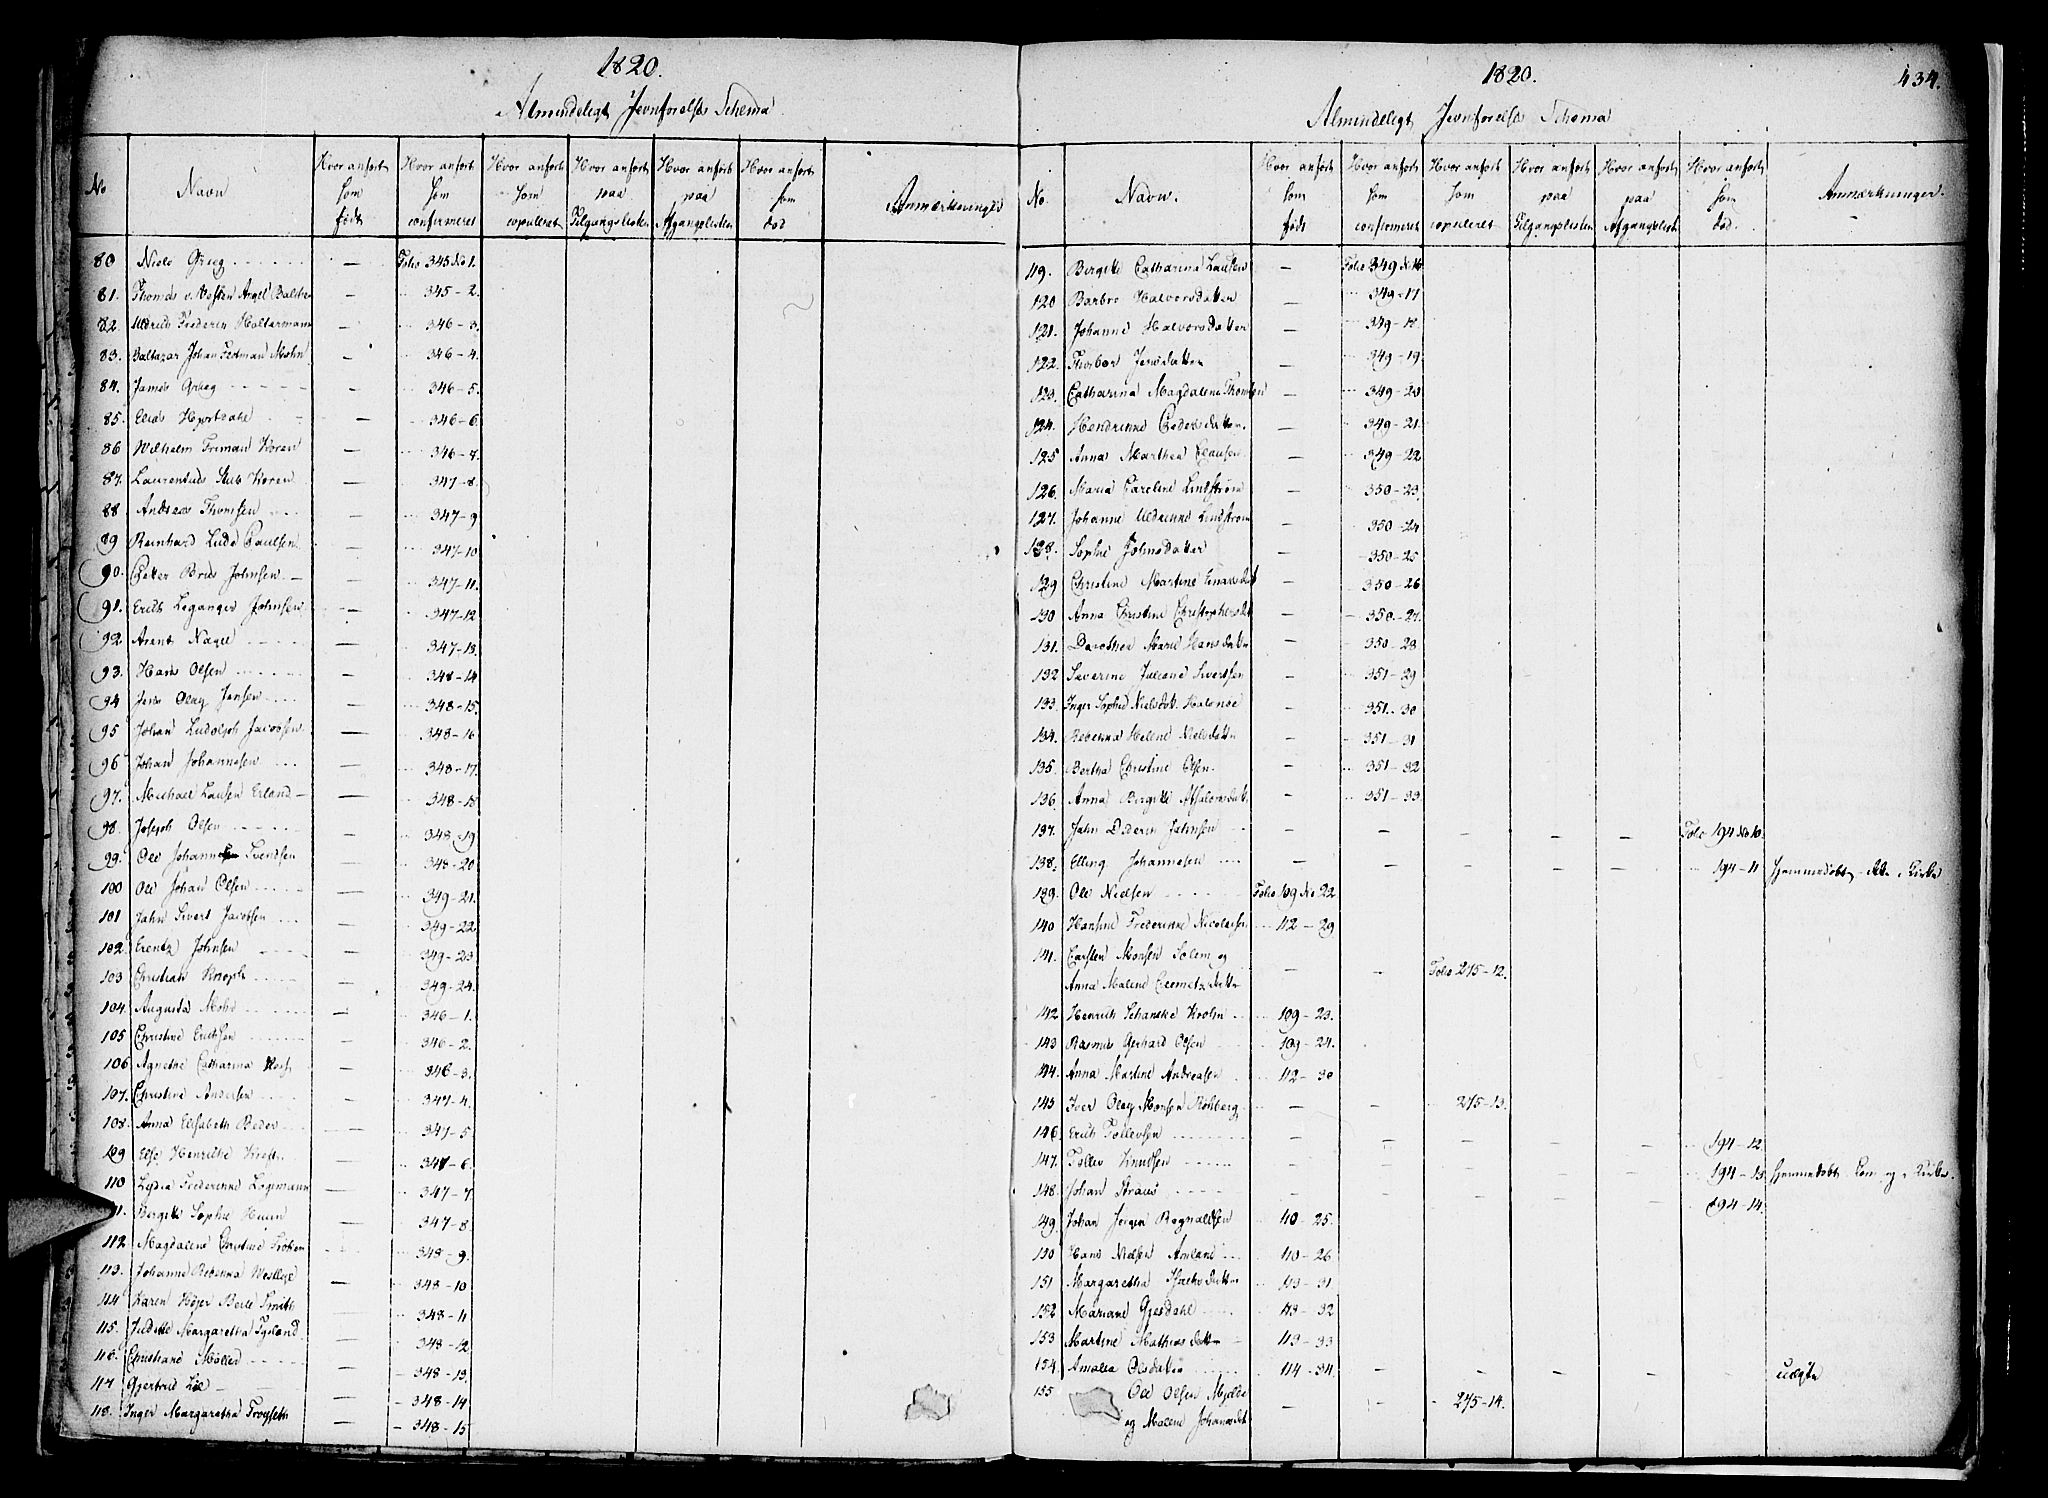 1820.
Almindeligt Jevnførelses Schema
No Navn Hvor anført som født Hvor anført som confirmeret Hvor anført som copuleret Hvor anført paa Tilgangslisten Hvor anført paa Afgangslisten Hvor anført som død Anmærkninger
80 Niels Grieg — Folio 345 No 1.
81. Thomas v. Westen Angel — 345-2.
82. Uldrich Frederich Holtermann — 346-3.
83. Baltazar Johan Mohn — 346-4.
84. James Grieg — 346-5.
85. Elias Hjortdahl — 346-6.
86 Wilhelm Friman Koren — 346-7.
87. Laurentius Stub Koren — 347-8.
88. Andreas Thomsen — 347-9
89 Reinhard Ludv Paulsen — 347-10
90. Petter Brus Johnsen — 347-11.
91. Erich Leganger Johnsen — 347-12.
92. Arent Nagel — 347-13.
93. Hans Olsen — 348-14
94 Jens Olay Jensen — 348-15.
95 Johan Ludolph Jacobsen — 348-16
96 Johan Johannesen — 348-17.
97. Michael Lausen Erland — 348-18
98. Joseph Olsen — 348-19
99. Ole Johannes Svendsen — 348-20
100 Ole Johan Olsen — 349-21.
101 Jahn Sivert Jacobsen — 349-22.
102. Erentz Johnsen — 349-23
103 Christian Knoph — 349-24.
104. Augusta Mohr — 346-1.
105 Christine Erichsen — 346-2.
106 Agnethe Catharina — 346-3.
107. Christine Andersen — 347-4.
108. Anna Elisabeth Beder — 347-5
109 Else Henrikke — 347-6
110 Lydia Frederikke Logemann — 347-7
111. Bergitte Sophie — 347-8
112. Magdalena Christine — 348-9.
113. Johanne Rebekka — 348-10
114 Karen Højer Berle Smith — 348-11
115. Judithe Margaretha — 348-12
116. Christiane Møller — 348-13.
117 Gjertrud Lie — 348-14
118. Inger Margaretha — 348-15
1820. 434.
Almindeligt Jevnførelses Schema
No. Navn. Hvor anført som født Hvor anført som confirmeret Hvor anført som copuleret Hvor anført paa Tilgangslisten Hvor anført paa Afgangslisten Hvor anført som død. Anmærkninger.
119. Bergitte Catharina Lausen — Folio 349 No 16
120 Barbro Halvorsdatter — 349-17
121. Johanne Halvorsdatter — 349-18.
122. Thorbor Jensdatter — 349-19
123. Catharina Magdalena Thomsen — 349-20
124. Hendrikke Pedersdatter — 349-21.
125 Anna Marthea Clausen — 349-22.
126. Maria Caroline Lindstrøm — 350-23.
127. Johanne Uldrikke Lindstrøm — 350-24
128. Sophie Johnsdatter — 350-25
129 Christine Martine — 350-26
130 Anna Christine Christophersdt — 350-27.
131. Dorothea Marie Hansdatter — 350-28
132 Severine Juliane Sivertsen — 351-29
133. Inger Sophie Nielsdt. — 351-30
134. Rebekka Helene Nielsdatter — 351-31
135. Bertha Christine Olsen. — 351-32
136. Anna Bergitte — 351-33.
137. Jahn Diderich Jahnsen — — — — — Folio 194 No 10.
138. Elling Johannesen — — — — — 194-11 Hjemmedøbt
139. Ole Nielsen Folio 109 No 22.
140 Hansine Frederikke Nicolaisen 112-29
141. Carsten Monsen Solem og — — Folio 275-12.
Anna Malene
142 Henrich Schanche Krohn 109-23.
143 Rasmus Gerhard Olsen 109-24.
144. Anna Martine Andreasen 112-30
145 Iver Olay Monsen — — 275-13.
146. Erich Tollevsen — — — — — 194-12.
147. Tollev Knudsen — — — — — 194-13 Hjemmedøbt
148. Johan Straus — — — — — 194-14.
149 Johan Jørgen Rognaldsen 110-25.
150 Hans Nielsen 110-26
151 Margaretha 113-31
152 Mariane Gjesdahl 113-32
153 Martine Mathiasdatter 113-33
154. Amalia Olsdatter 114-34. — — — — — uægte
155 Ole Olsen Mjelde
og Malene Johannesdt — — 275-14.